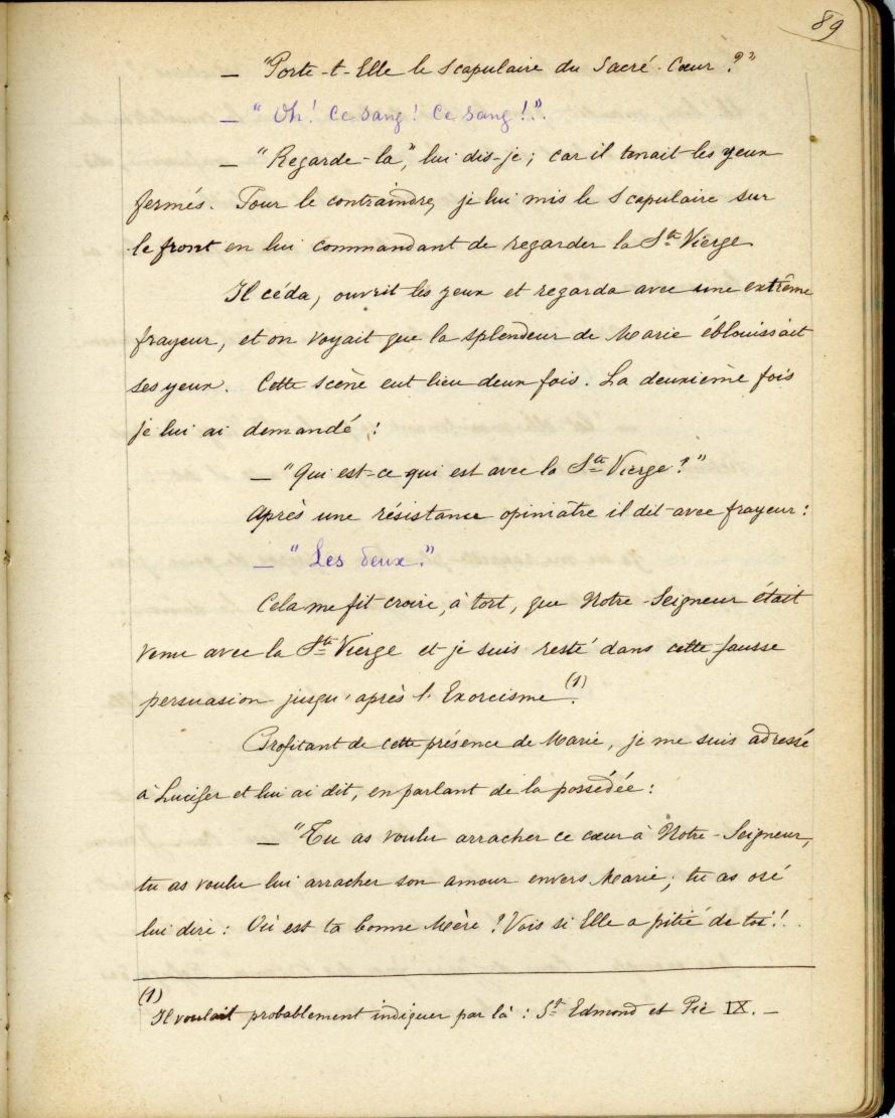 89
— "Porte-t-Elle le Scapulaire du Sacré-Cœur ?"
— "Oh! Ce sang! Ce sang!".
— "Regarde-la", lui dis-je; car il tenait les yeux
fermés. Pour le contraindre, je lui mis le Scapulaire sur
le front en lui commandant de regarder la Ste Vierge
Il céda, ouvrit les yeux et regarda avec une extrême
frayeur, et on voyait que la splendeur de Marie éblouissait
ses yeux. Cette scène eut lieu deux fois. La deuxième fois
je lui ai demandé :
— "Qui est-ce qui est avec la Ste Vierge?"
Après une résistance opiniâtre il dit avec frayeur:
— "Les deux."
Cela me fit croire, à tort, que Notre-Seigneur était
venu avec la Ste Vierge et je suis resté dans cette fausse
persuasion jusqu'après l'Exorcisme (1).
Profitant de cette présence de Marie, je me suis adressé
à Lucifer et lui ai dit, en parlant de la possédée:
— "Tu as voulu arracher ce cœur à Notre-Seigneur,
tu as voulu lui arracher son amour envers Marie; tu as osé
lui dire: Où est ta bonne Mère? Vois si Elle a pitié de toi!.
(1)
Il voulait probablement indiquer par là: St Edmond et Pie IX. —